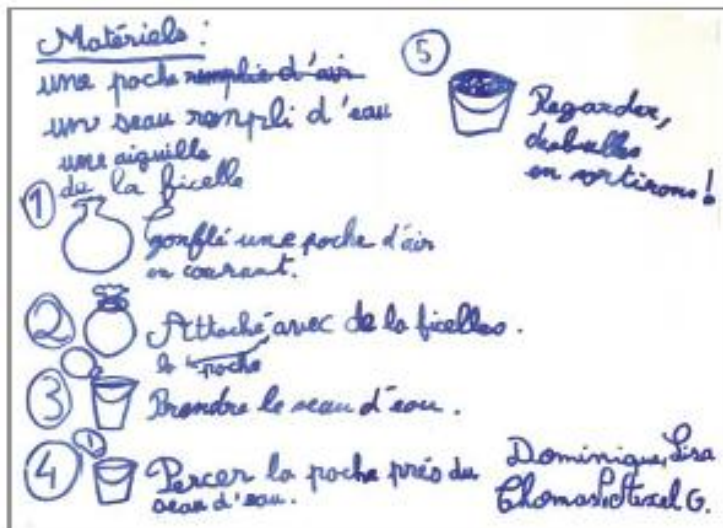 Matériels :
une poche remplie d'air
un seau rempli d'eau
une aiguille
de la ficelle
1
gonflé une poche d'air
en courant.
2 Attaché avec de la ficelles.
la poche
3 Prendre le seau d'eau.
4 Percer la poche prés du
seau d'eau.
5
Regarder,
des bulles
en sortirons !
Dominique, Lisa
Thomas, G.